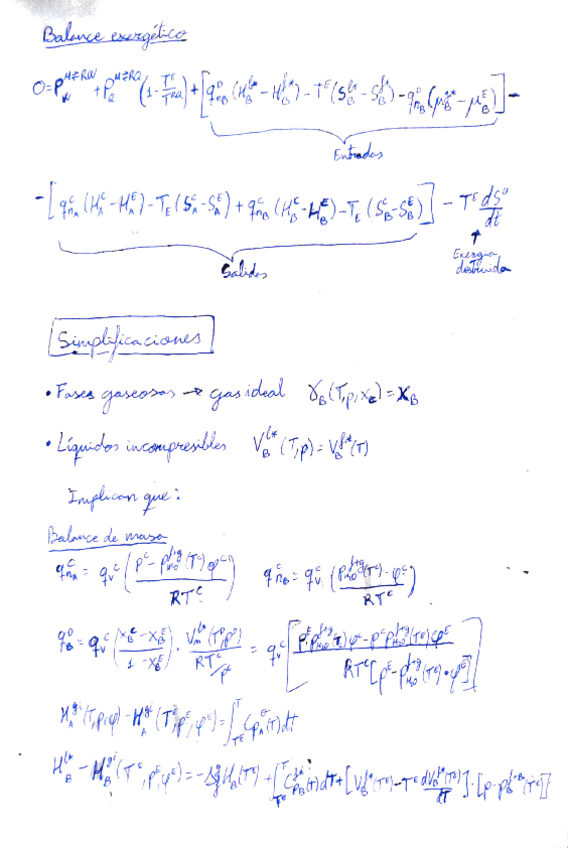 Balance exergético
0 = P_W^{M≠RW} + P_Q^{M≠RQ} (1 - T^E/T^{RQ}) + [q_{n_B}^D (H_B^{l*} - H_B^{l*}) - T^E (S_B^{l*} - S_B^{l*}) - q_{n_B}^D (μ_B^{g*} - μ_B^E)] -
Entradas
- [q_{n_A}^C (H_A^C - H_A^E) - T_E (S_A^C - S_A^E) + q_{n_B}^C (H_B^C - H_B^E) - T_E (S_B^C - S_B^E)] - T^E dS^σ/dt
Salidas
Exergia destruida
Simplificaciones
• Fases gaseosas → gas ideal γ_B(T,p,x_c) = x_B
• Líquidos incompresibles V_B^{l*}(T,p) = V_B^{l*}(T)
Implican que:
Balance de masa
q_{n_A}^C = q_V^C ((p^C - p_{H_2O}^{l+g}(T^C) φ^C) / RT^C) q_{n_B}^C = q_V^C (p_{H_2O}^{l+g}(T^C)·φ^C / RT^C)
q_B^D = q_V^C ((x_B^C - x_B^E) / (1 - x_B^E)) · V_m^{l*}(T^D,p^D) / (RT^C/p^C) = q_V^C [(p^E p_{H_2O}^{l+g}(T^C) φ^C - p^C p_{H_2O}^{l+g}(T^E) φ^E) / (RT^C [p^E - p_{H_2O}^{l+g}(T^E)·φ^E])]
H_A^{gi}(T,p,φ) - H_A^{gi}(T^E,p^E,φ^E) = ∫_{T^E}^{T} C_{pA}^σ(T) dt
H_B^{l*} - H_B^{gi}(T^E,p^E,φ^E) = -Δ_l^g H_B(T^E) + ∫_{T^E}^{T} C_{pB}^{l*}(T) dT + [V_B^{l*}(T^E) - T^E dV_B^{l*}(T^E)/dT]·[p - p_B^{l+g}(T^E)]